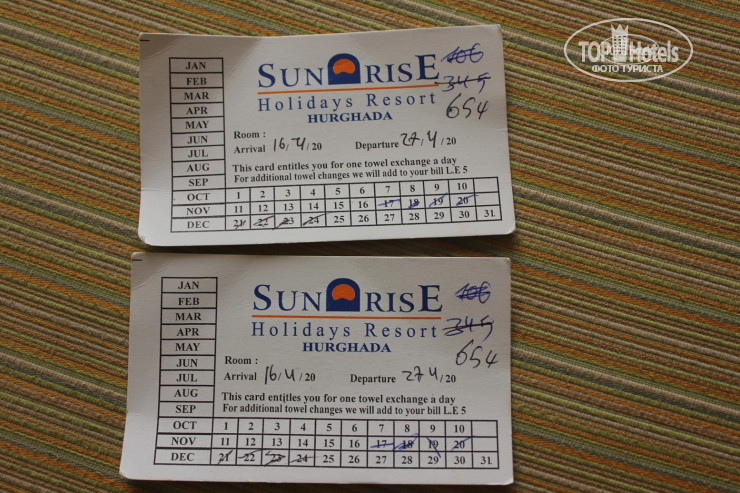 TOP Hotels
ФОТО ТУРИСТА
SUNRISE 106
Holidays Resort 345
HURGHADA 654
Room :
Arrival 16/4/20 Departure 27/4/20
This card entitles you for one towel exchange a day
For additional towel changes we will add to your bill L.E 5
JAN
FEB
MAR
APR
MAY
JUN
JUL
AUG
SEP
OCT 1 2 3 4 5 6 7 8 9 10
NOV 11 12 13 14 15 16 17 18 19 20
DEC 21 22 23 24 25 26 27 28 29 30 31
SUNRISE 106
Holidays Resort 345
HURGHADA 654
Room :
Arrival 16/4/20 Departure 27 4/20
This card entitles you for one towel exchange a day
For additional towel changes we will add to your bill L.E 5
JAN
FEB
MAR
APR
MAY
JUN
JUL
AUG
SEP
OCT 1 2 3 4 5 6 7 8 9 10
NOV 11 12 13 14 15 16 17 18 19 20
DEC 21 22 23 24 25 26 27 28 29 30 31